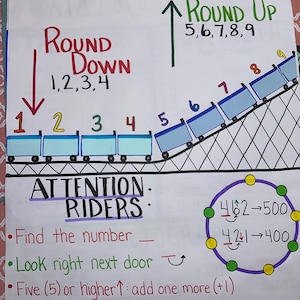 ROUND DOWN
1, 2, 3, 4
ROUND UP
5, 6, 7, 8, 9
1 2 3 4 5 6 7 8 9
ATTENTION
RIDERS:
• Find the number _
• Look right next door
• Five (5) or higher↑: add one more (+1)
462→500
421→400